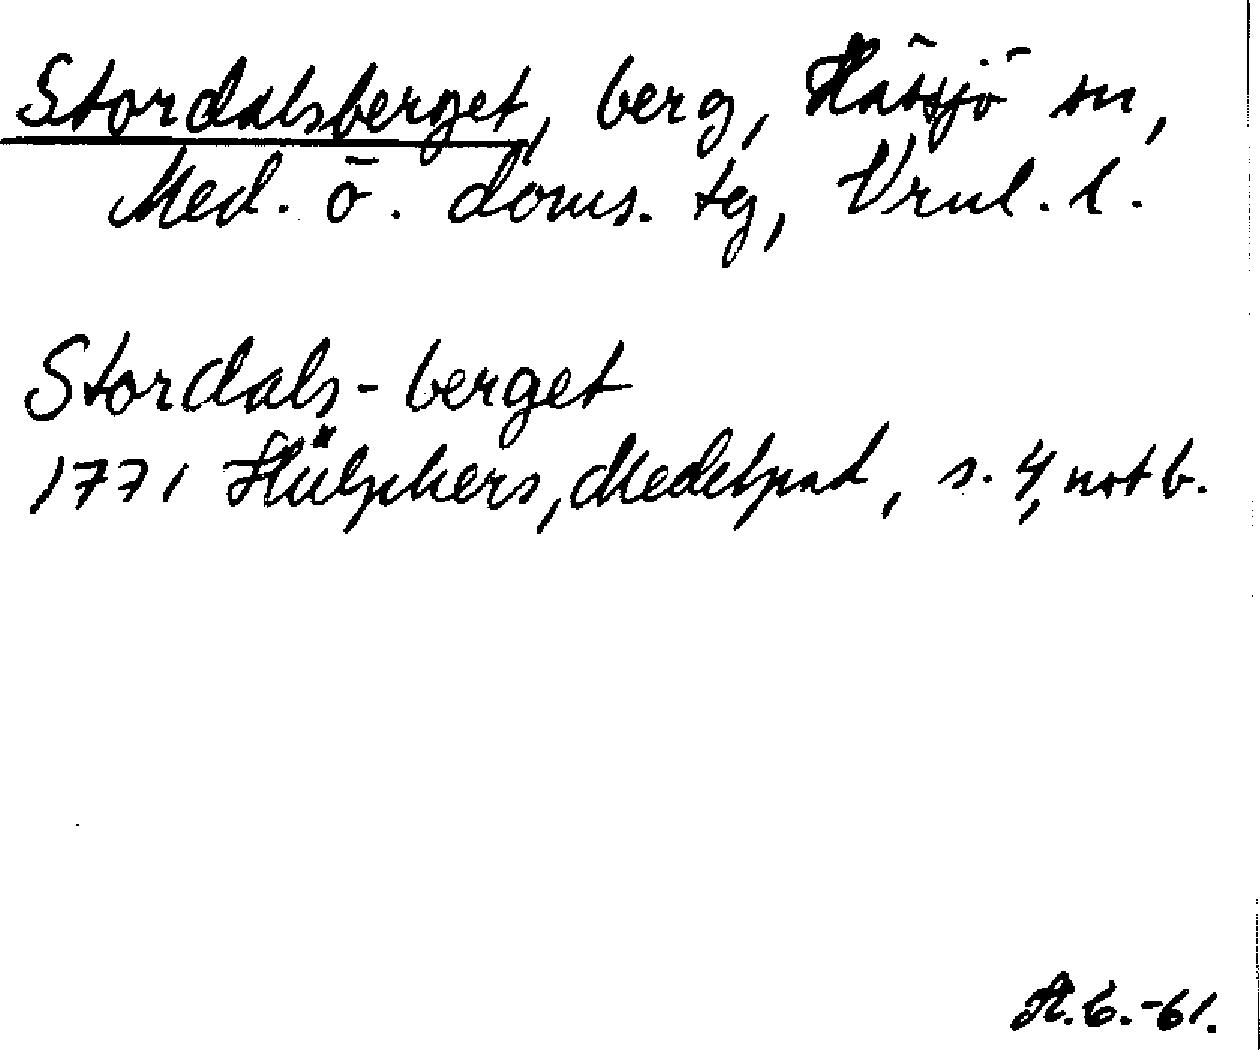 Stordalsberget, berg, Hässjö sn,
Med. ö. doms. tg, Vrnl. l.
Stordals-berget
1771 Hülphers, Medelpad, s. 4, not b.
A.B.-61.